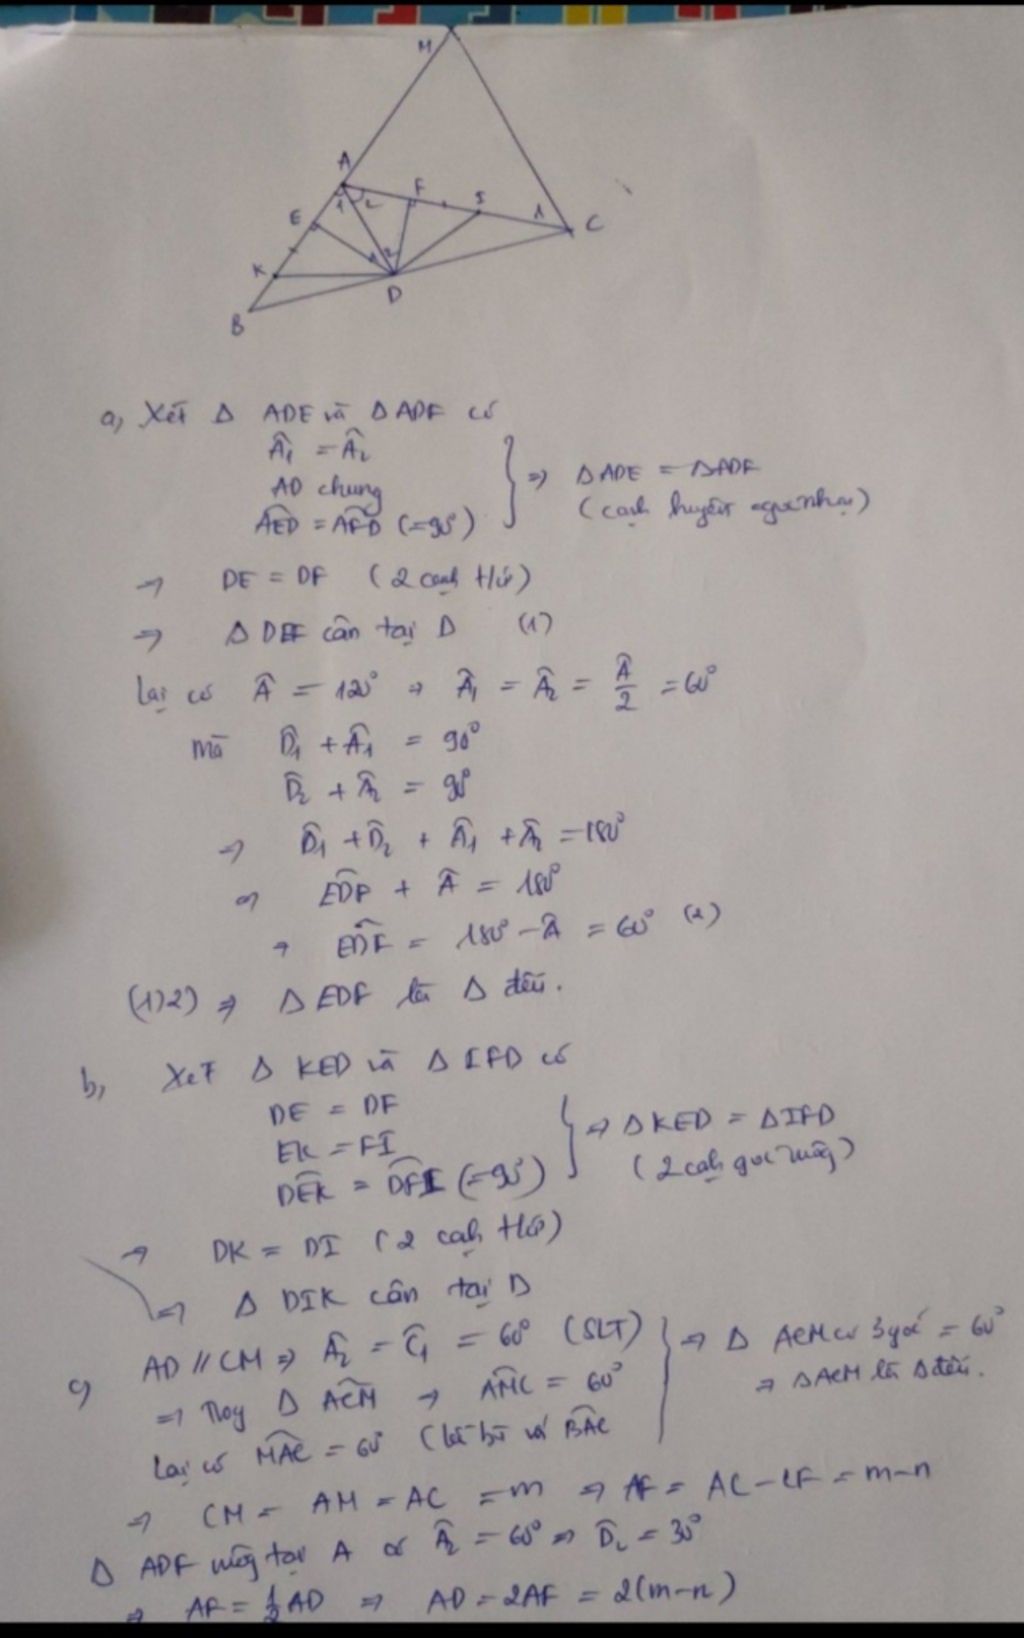 M
A
F
I
1
C
E
1 2
K
1 2
D
B
a, Xét Δ ADE và Δ ADF có
Â₁ = Â₂
AD chung
AED = AFD (=90°)
⇒ Δ ADE = Δ ADF
(cạnh huyền góc nhọn)
⇒ DE = DF (2 cạnh t/ứ)
⇒ Δ DEF cân tại D (1)
Lại có Â = 120° ⇒ Â₁ = Â₂ = Â/2 = 60°
mà D̂₁ + Â₁ = 90°
D̂₂ + Â₂ = 90°
⇒ D̂₁ + D̂₂ + Â₁ + Â₂ = 180°
⇒ EDF + Â = 180°
⇒ EDF = 180° - Â = 60° (2)
(1)(2) ⇒ Δ EDF là Δ đều.
b, Xét Δ KED và Δ IFD có
DE = DF
EK = FI
DEK = DFI (=90°)
⇒ Δ KED = Δ IFD
(2 cạnh góc vuông)
⇒ DK = DI (2 cạnh t/ứ)
⇒ Δ DIK cân tại D
c, AD // CM ⇒ Â₂ = Ĉ₁ = 60° (SLT)
⇒ Δ ACM ⇒ AMC = 60°
Lại có MAC = 60° (kề bù với BAC
⇒ Δ ACM có 3 góc = 60°
⇒ Δ ACM là Δ đều.
⇒ CM = AM = AC = m ⇒ AF = AC - CF = m-n
Δ ADF vuông tại A có Â₂ = 60° ⇒ D̂₂ = 30°
⇒ AF = 1/2 AD ⇒ AD = 2AF = 2(m-n)